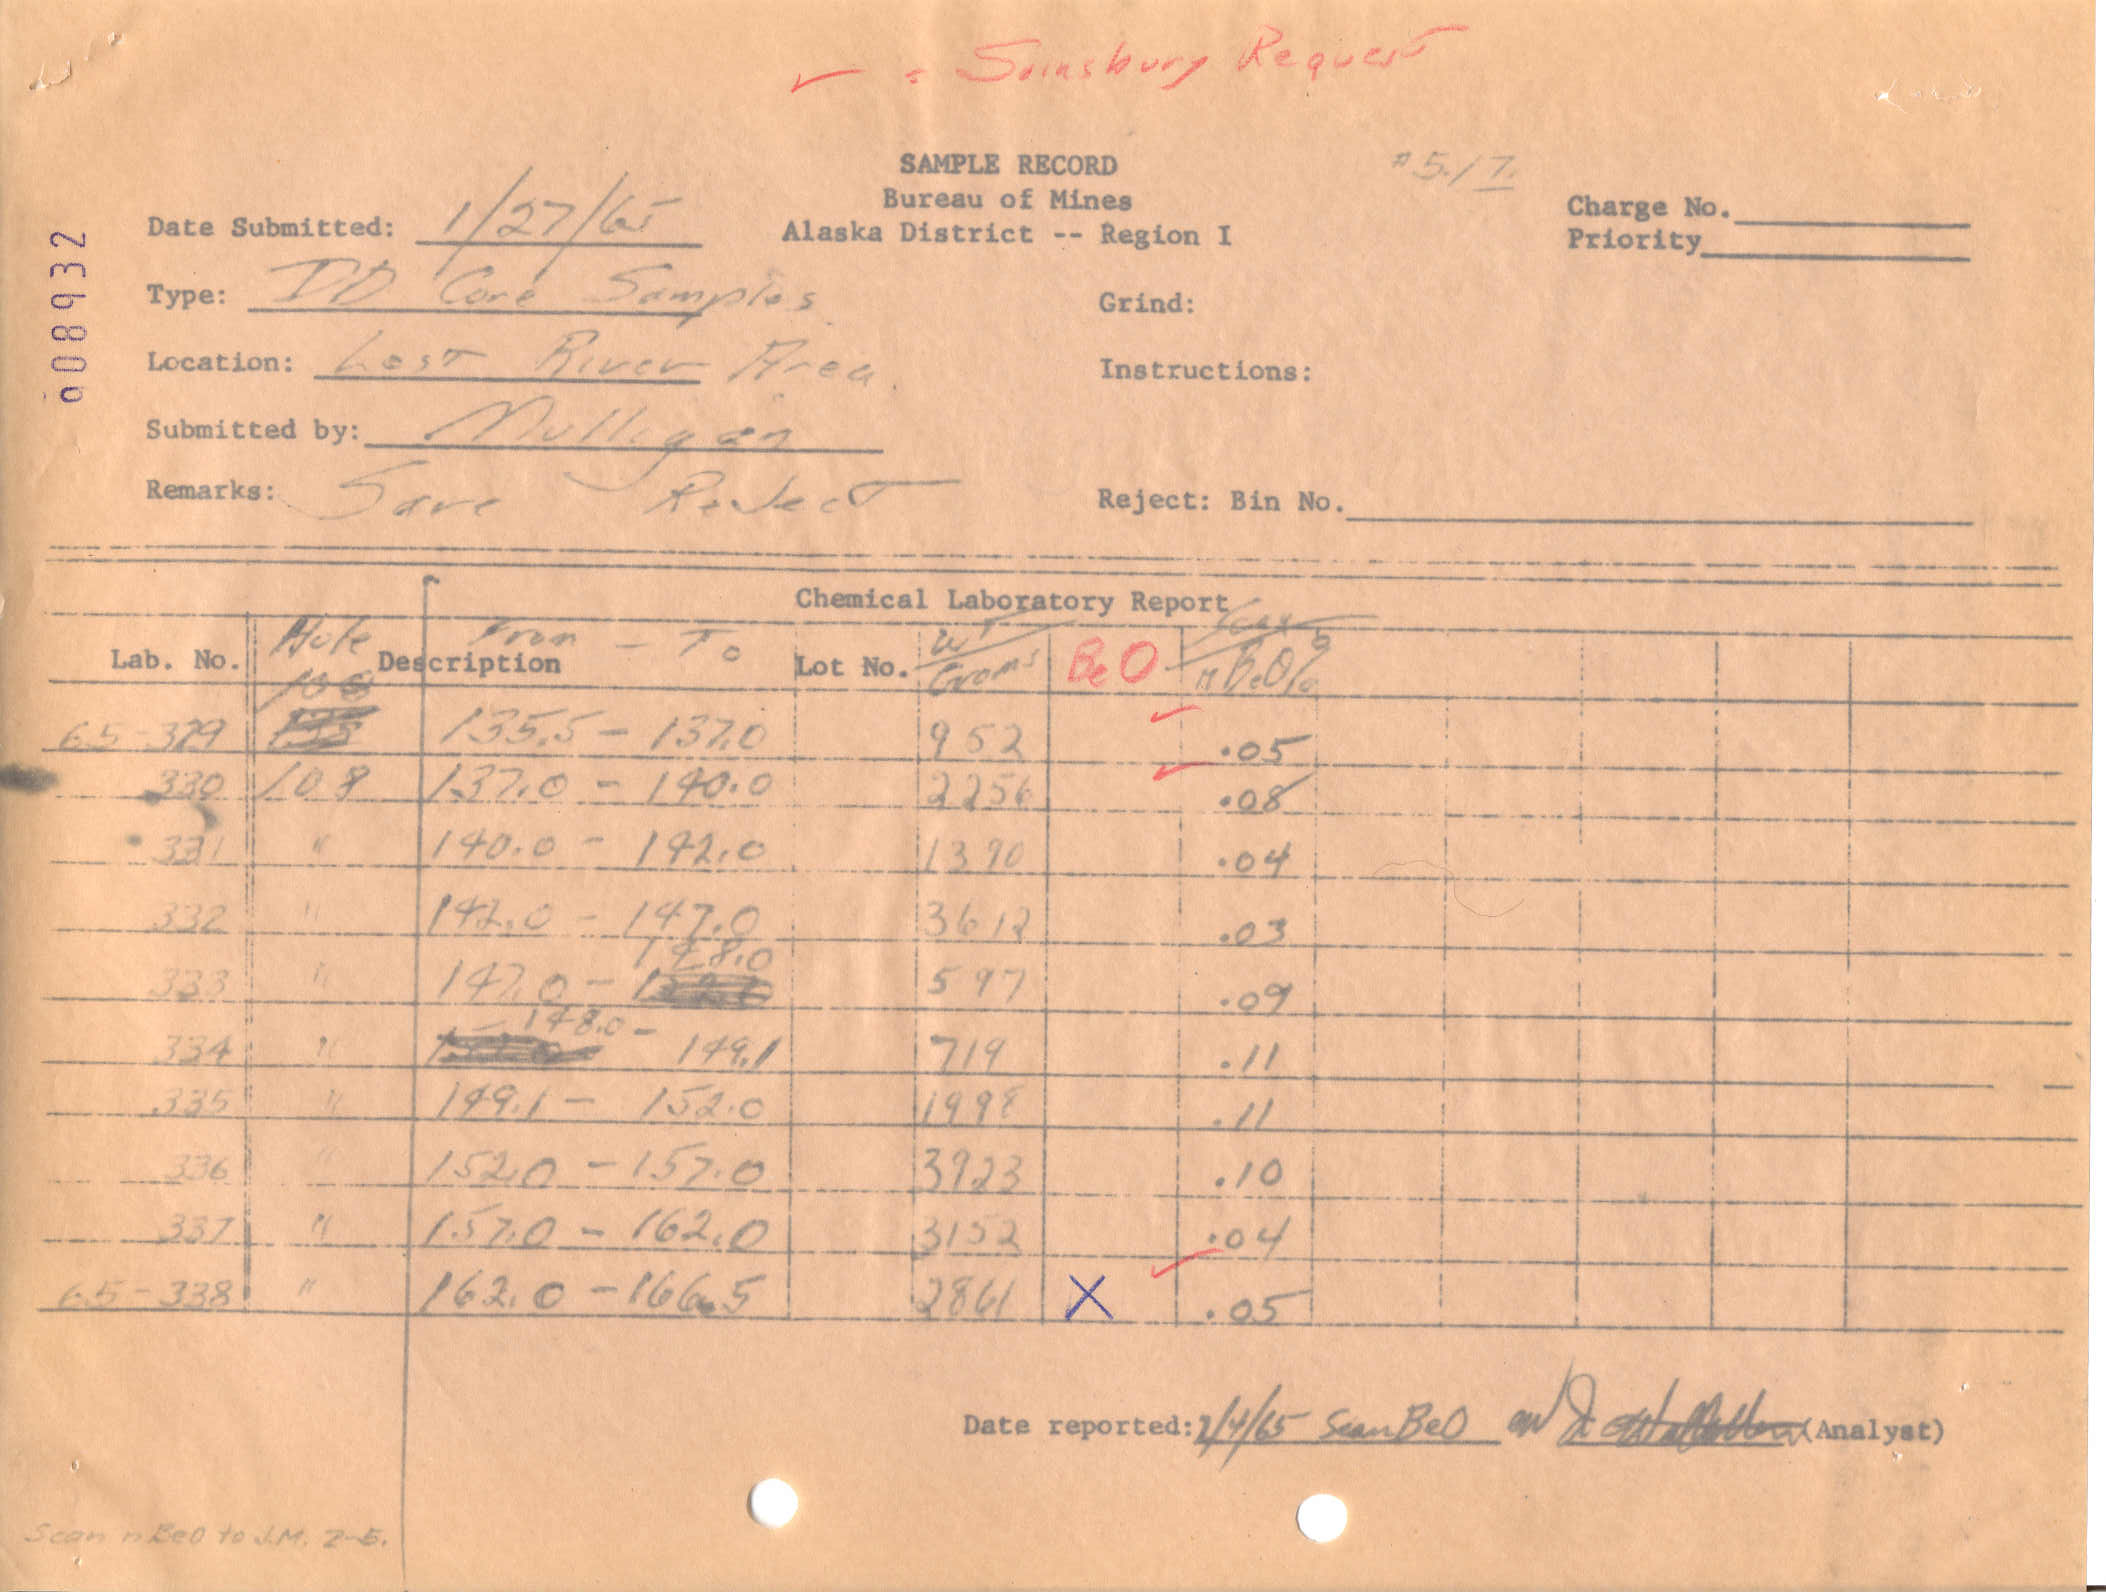 ✓ = Sainsbury Request
SAMPLE RECORD
#5.17.
Bureau of Mines
Alaska District -- Region I
Charge No.
Priority
008932
Date Submitted: 1/27/65
Type: DD Core Samples
Grind:
Location: Lost River Area.
Instructions:
Submitted by: Mulligan
Remarks: Save Reject
Reject: Bin No.
Chemical Laboratory Report
Lab. No. Hole No Description From - To Lot No. WT Grams BeO Scan n BeO%
65-329 135.5 - 137.0 952 ✓ .05
330 108 137.0 - 140.0 2256 ✓ .08
331 " 140.0 - 142.0 1390 .04
332 " 142.0 - 147.0 3612 .03
333 " 147.0 - 148.0 597 .09
334 " 148.0 - 149.1 719 .11
335 " 149.1 - 152.0 1998 .11
336 " 152.0 - 157.0 3923 .10
337 " 157.0 - 162.0 3152 .04
65-338 " 162.0 - 166.5 2861 X ✓ .05
Date reported: 2/4/65 Scan BeO (Analyst)
Scan n BeO to J.M. 2-5.